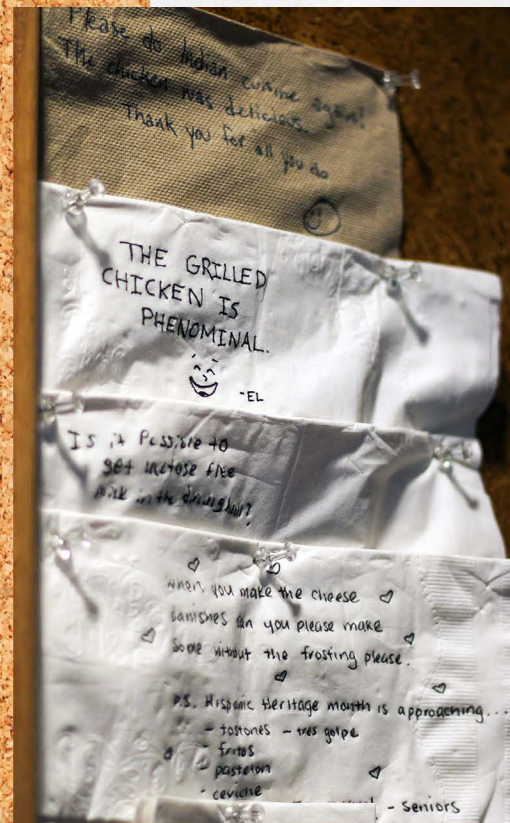 Please do Indian cuisine again!
The chicken was delicious.
Thank you for all you do
THE GRILLED
CHICKEN IS
PHENOMINAL.
-EL
Is it Possible to
get lactose free
milk in the dining hall?
When you make the cheese
danishes can you please make
some without the frosting please.
P.S. Hispanic Heritage month is approaching...
- tostones - tres golpe
- fritos
- pastelon
- ceviche
- seniors